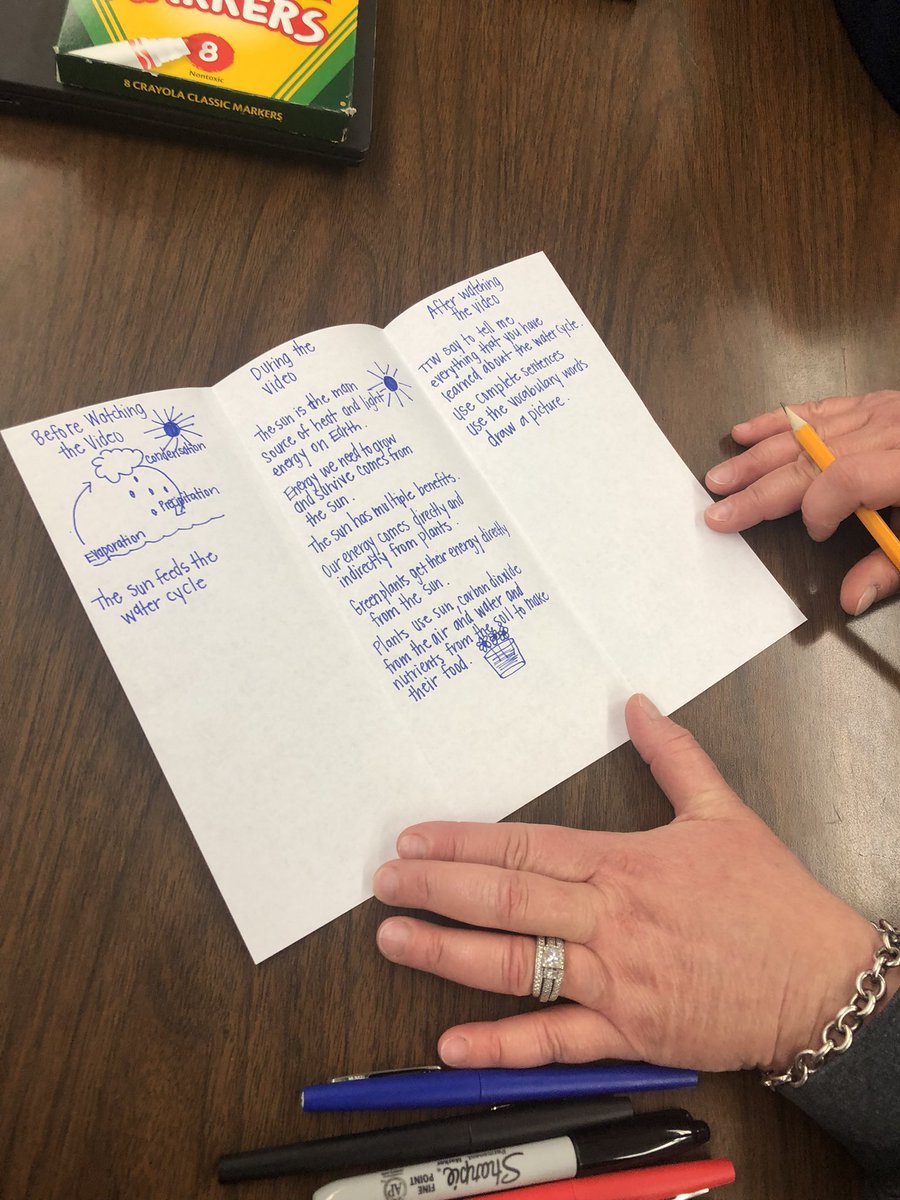 MARKERS
8
Nontoxic
8 CRAYOLA CLASSIC MARKERS
Before Watching
the Video
Condensation
Precipitation
Evaporation
The sun feeds the
water cycle
During the
Video
The sun is the main
source of heat and light
energy on Earth.
Energy we need to grow
and survive comes from
the sun.
The sun has multiple benefits.
Our energy comes directly and
indirectly from plants.
Green plants get their energy directly
from the sun.
Plants use sun, carbon dioxide
from the air and water and
nutrients from the soil to make
their food.
After watching
the video
TTW say to tell me
everything that you have
learned about the water cycle.
Use complete sentences
use the vocabulary words
draw a picture.
Sharpie
FINE
POINT
Permanent Marker
AP